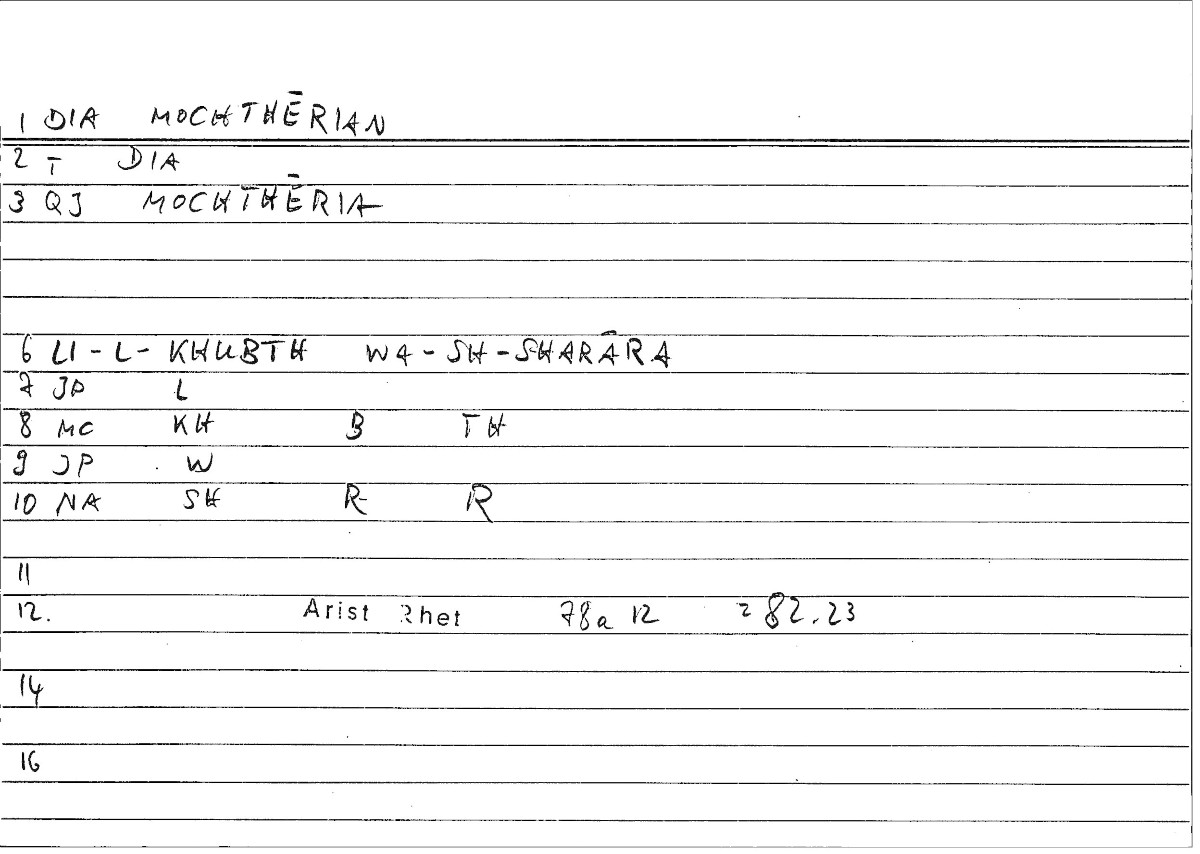 1 DIA MOCHTHĒRIAN
2 T DIA
3 QJ MOCHTHĒRIA
6 LI-L-KHUBTH WA-SH-SHARĀRA
7 JP L
8 MC KH B TH
9 JP W
10 NA SH R R
11
12. Arist Rhet 78a 12 = 82.23
14
16